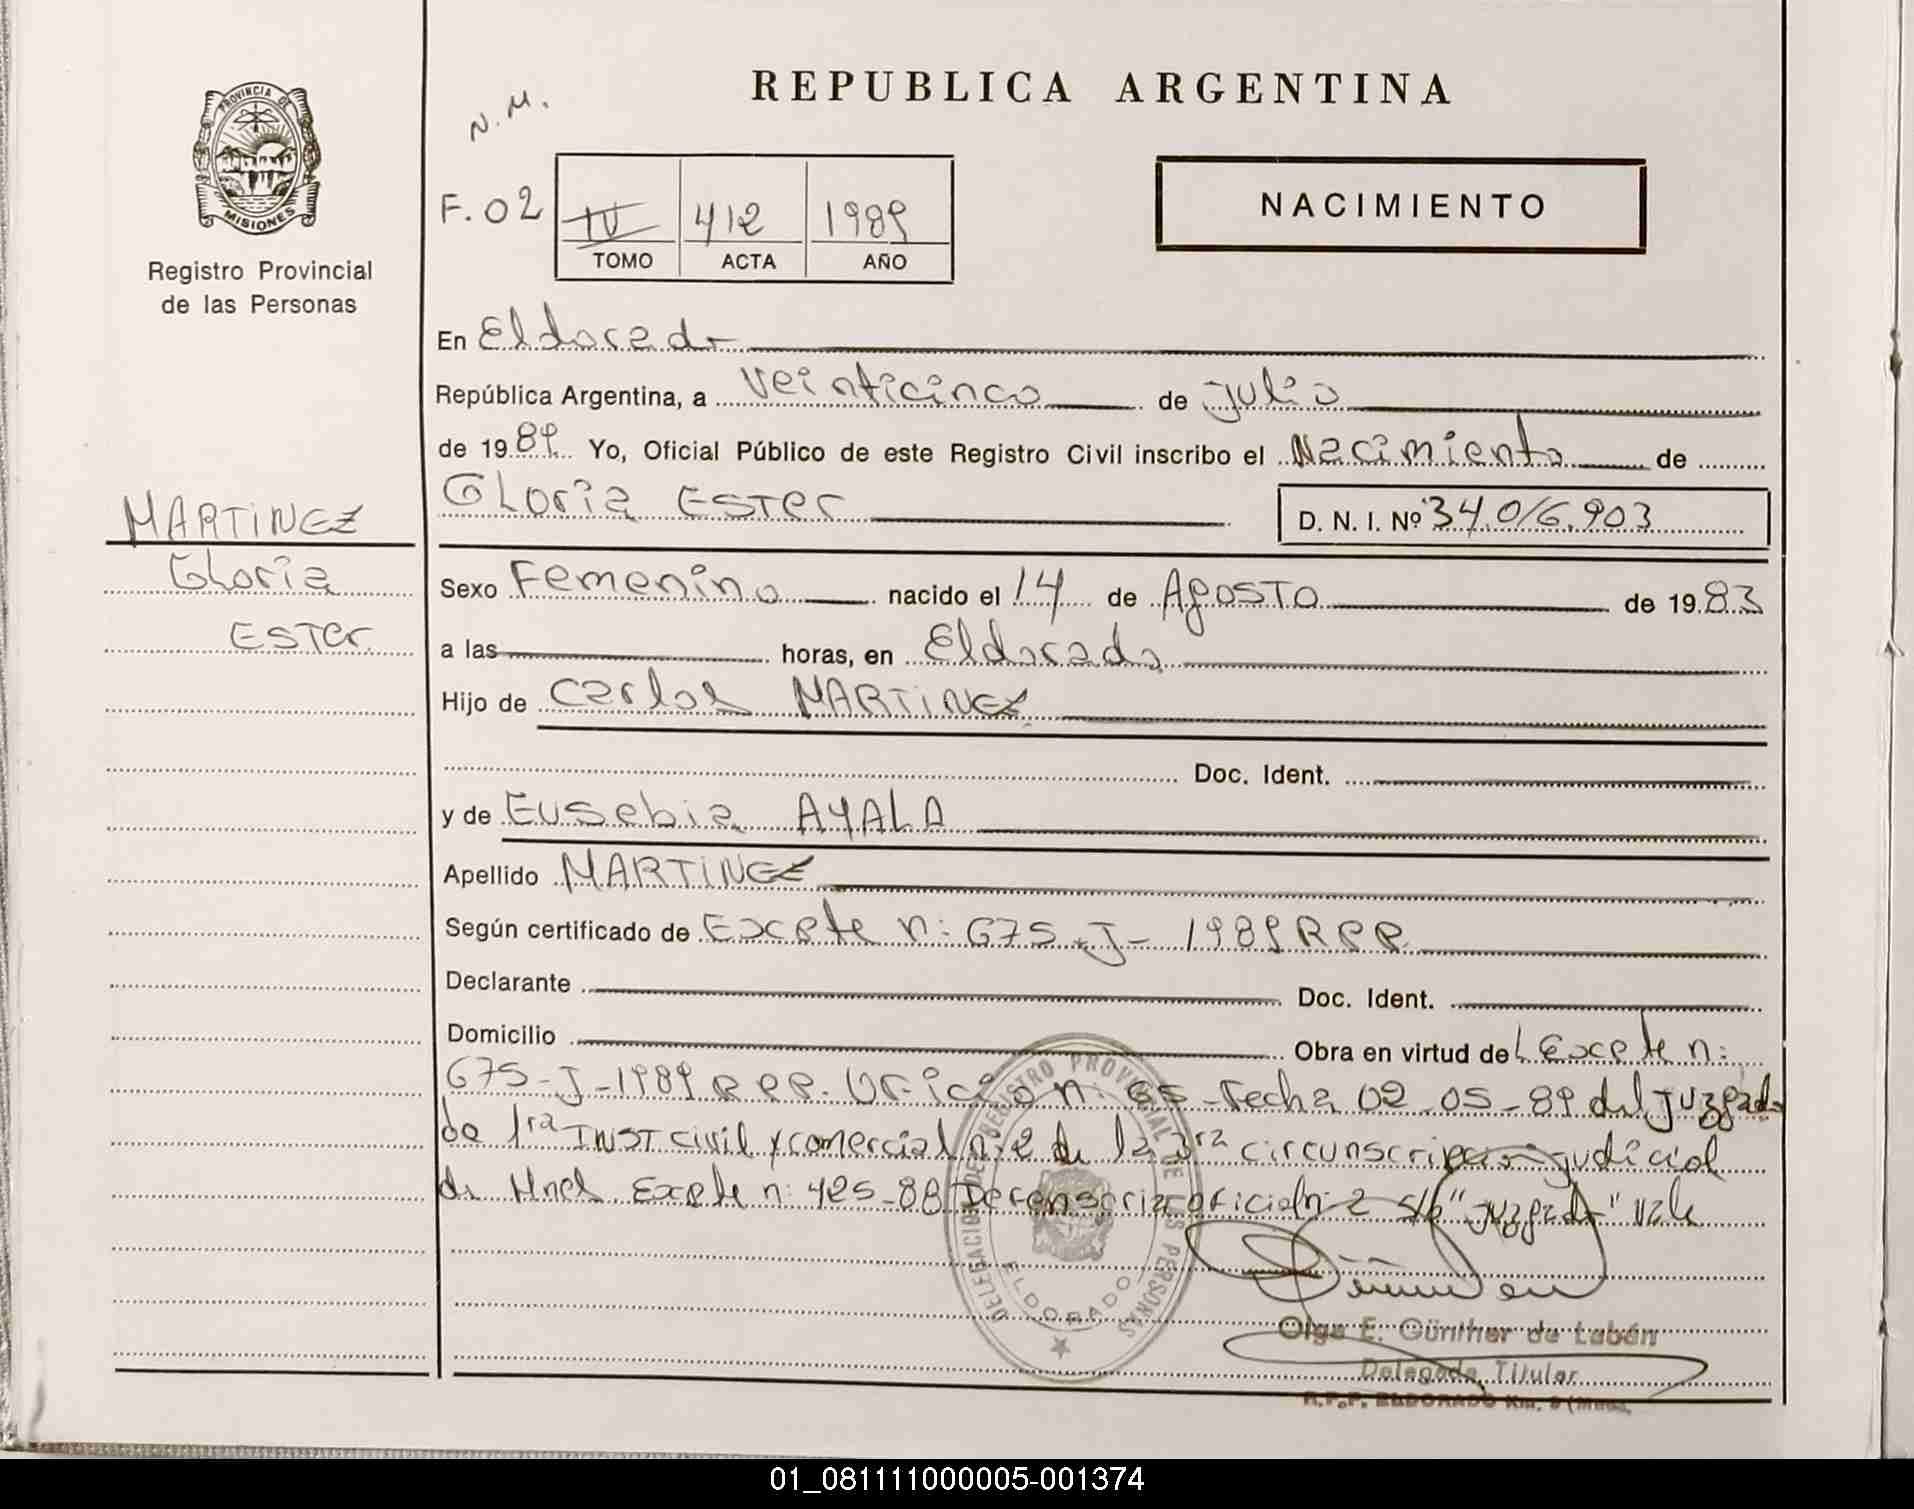 PROVINCIA DE
MISIONES
Registro Provincial
de las Personas
REPUBLICA ARGENTINA
N.M.
F.02
IV 412 1989
TOMO ACTA AÑO
NACIMIENTO
En Eldorado
República Argentina, a Veinticinco de Julio
de 1989 Yo, Oficial Público de este Registro Civil inscribo el Nacimiento de
MARTINEZ
Gloria
Ester
Gloria Ester
D. N. I. Nº 34.016.903
Sexo Femenino nacido el 14 de Agosto de 1983
a las horas, en Eldorado
Hijo de Carlos MARTINEZ
Doc. Ident.
y de Eusebia AYALA
Apellido MARTINEZ
Según certificado de Expte n: 675-J-1989 RPP
Declarante Doc. Ident.
Domicilio Obra en virtud del Expte n:
675-J-1989 RPP. Oficio n: 65-Fecha 02-05-89 del Juzgado
de 1ra INST civil y comercial n:2 de la 3ra circunscripcion judicial
de Mnes Expte n: 425-88 Defensoria oficial n: 2 s/b "Juzgado" Vale
DELEGACION DE REGISTRO PROVINCIAL DE LAS PERSONAS
ELDORADO
Olga E. Günther de Labán
Delegada Titular
R.P.P. ELDORADO Km. 9 (Mnes.
01_081111000005-001374